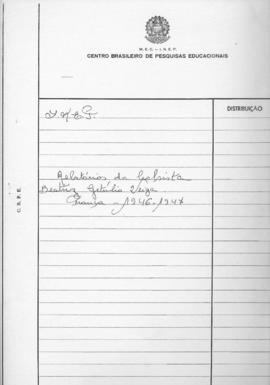 M.E.C. - I.N.E.P.
CENTRO BRASILEIRO DE PESQUISAS EDUCACIONAIS
DISTRIBUIÇÃO
C. B. P. E.
Relatórios da bolsista
Beatriz Getúlio Veiga
França - 1946-1947